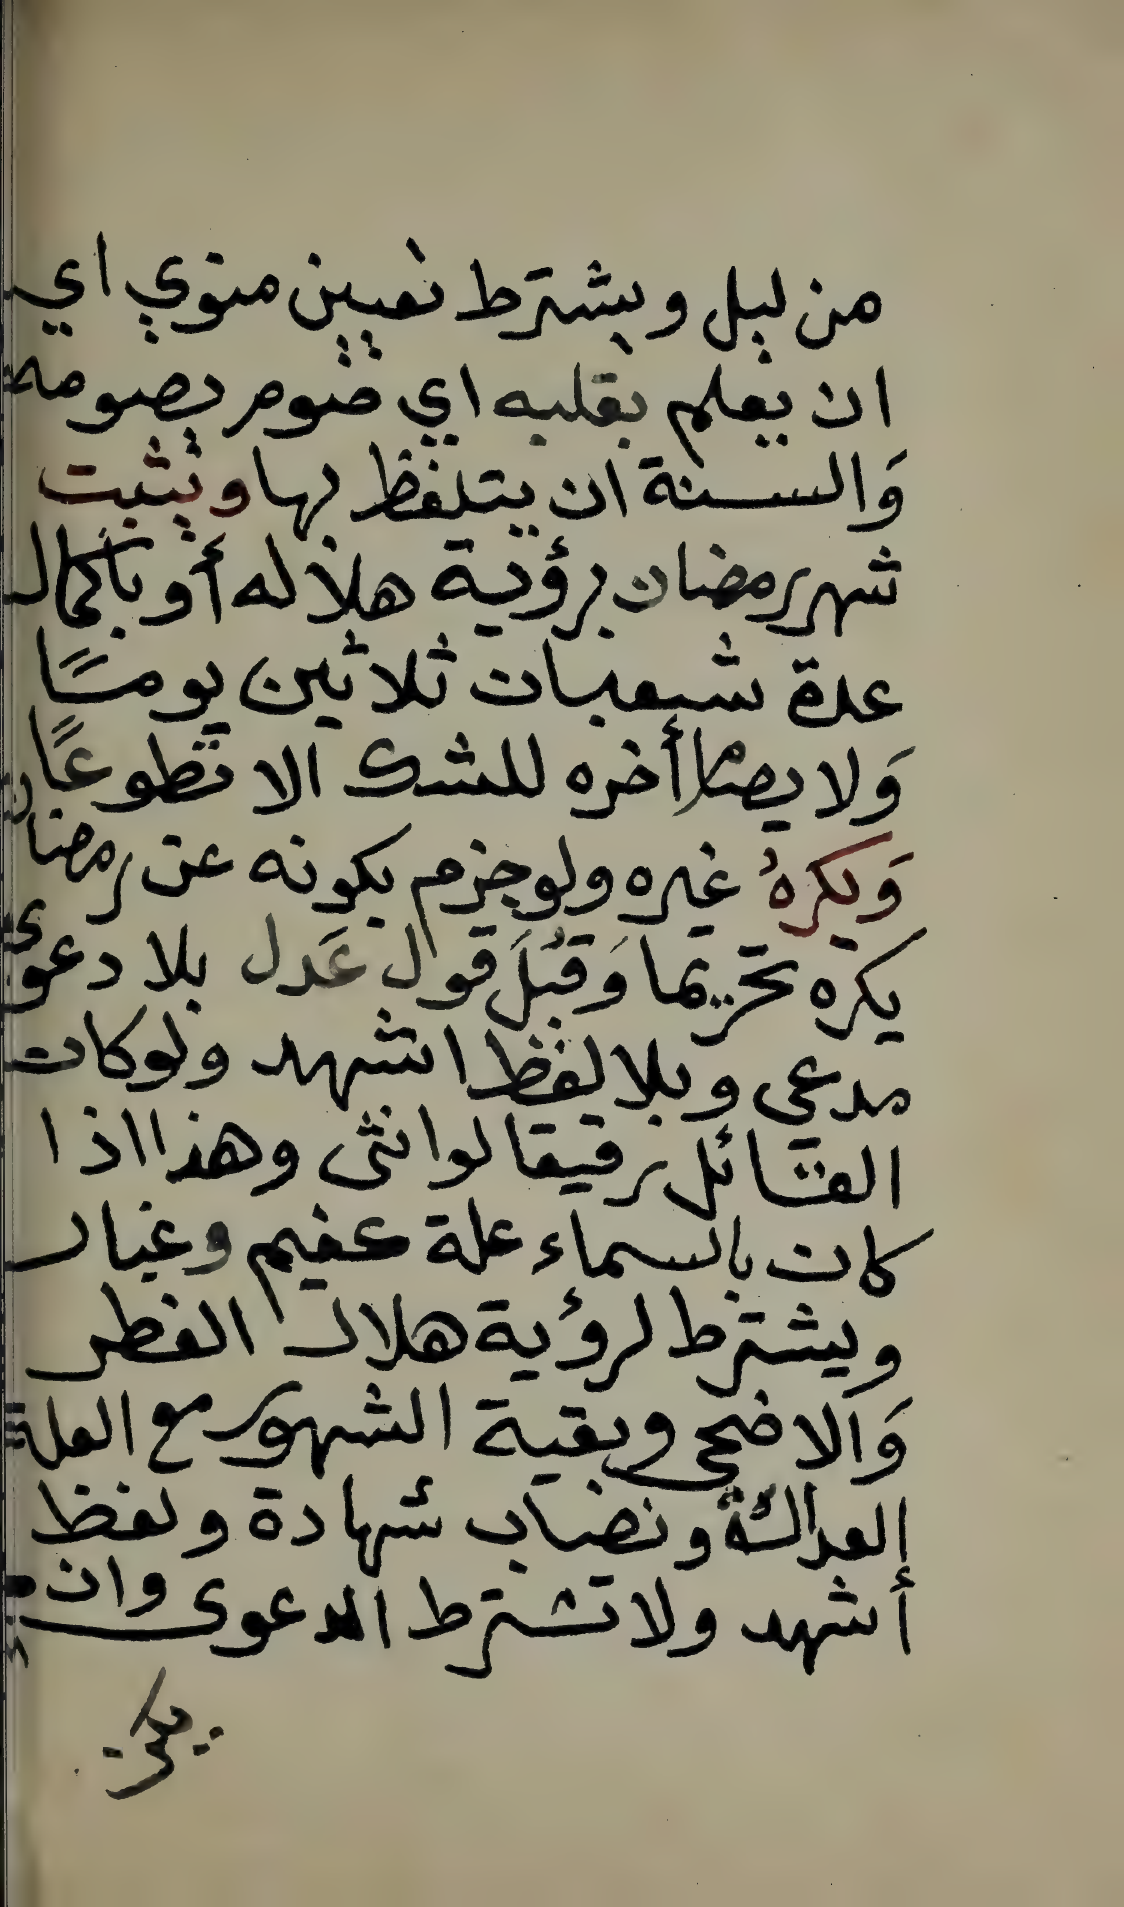 من ليل ويشترط تعيين منوي اي
ان يعلم بقلبه اي صوم يصومه
وَالسنة ان يتلفظ بها ويثبت
شهر رمضان برؤية هلاله أو باكمال
عدة شعبان ثلاثين يومًا
وَلا يصام أخره للشك الا تطوعًا
وَيكرهُ غيره ولو جزم بكونه عن رمضان
يكره تحريما وَقُبلَ قول عَدل بلا دعوى
مدعى وبلا لفظ اشهد ولو كان
القائل رقيقا لوانثى وهذا اذا
كان بالسماء علة كغيم وغبار
ويشترط لرؤية هلال الفطر
وَالاضحى وبقية الشهور مع العلة
العدالة ونصاب شهادة ولفظ
أشهد ولا تشترط الدعوى وان